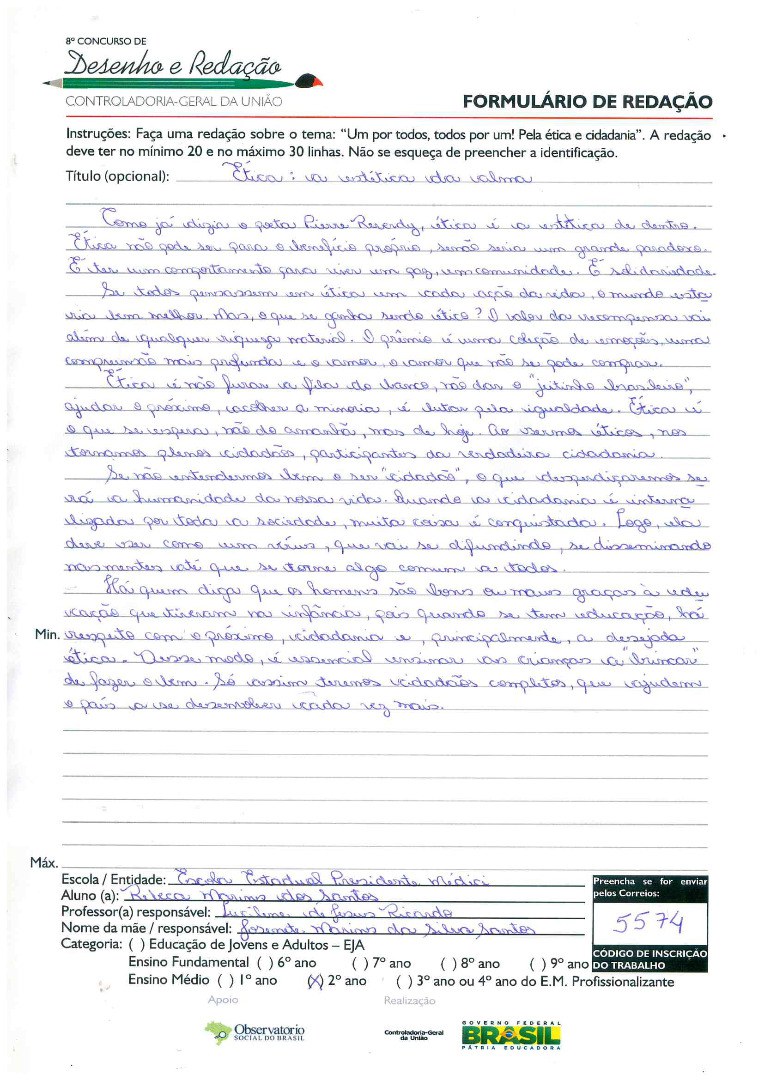 8º CONCURSO DE
Desenho e Redação
CONTROLADORIA-GERAL DA UNIÃO
FORMULÁRIO DE REDAÇÃO
Instruções: Faça uma redação sobre o tema: “Um por todos, todos por um! Pela ética e cidadania”. A redação
deve ter no mínimo 20 e no máximo 30 linhas. Não se esqueça de preencher a identificação.
Título (opcional): Ética: a estética da alma
Como já dizia o poeta Pierre Reverdy, ética é a estética de dentro.
Ética não pode ser para o benefício próprio, senão seria um grande paradoxo.
É ter um comportamento para viver em paz, em comunidade. É solidariedade.
Se todos pensassem em ética em cada ação da vida, o mundo esta
ria bem melhor. Mas, o que se ganha sendo ético? O valor da recompensa vai
além de qualquer riqueza material. O prêmio é uma coleção de emoções, uma
compreensão mais profunda e o amor, o amor que não se pode comprar.
Ética é não furar a fila do banco, não dar o "jeitinho brasileiro",
ajudar o próximo, acolher a minoria, é lutar pela igualdade. Ética é
o que se espera, não do amanhã, mas de hoje. Ao sermos éticos, nos
tornamos plenos cidadãos, participantes da verdadeira cidadania.
Se não entendermos bem o ser "cidadão", o que desperdiçaremos se
rá a humanidade da nossa vida. Quando a cidadania é interna
lizada por toda a sociedade, muita coisa é conquistada. Logo, ela
deve ser como um vírus, que vai se difundindo, se disseminando
nas mentes até que se torne algo comum a todos.
Há quem diga que os homens são bons ou maus graças à edu
cação que tiveram na infância, pois quando se tem educação, há
Min. respeito com o próximo, cidadania e, principalmente, a desejada
ética. Desse modo, é essencial ensinar as crianças a "brincar"
de fazer o bem. Só assim teremos cidadãos completos, que ajudem
o país a se desenvolver cada vez mais.
Máx.
Escola / Entidade: Escola Estadual Presidente Médici
Aluno (a): Rebeca Marinho dos Santos
Professor(a) responsável: Lucilene de Jesus Ricardo
Nome da mãe / responsável: Josenete Marinho da Silva Santos
Categoria: ( ) Educação de Jovens e Adultos – EJA
Ensino Fundamental ( ) 6º ano ( ) 7º ano ( ) 8º ano ( ) 9º ano
Ensino Médio ( ) 1º ano (X) 2º ano ( ) 3º ano ou 4º ano do E.M. Profissionalizante
Preencha se for enviar
pelos Correios:
5574
CÓDIGO DE INSCRIÇÃO
DO TRABALHO
Apoio
Realização
Observatorio
SOCIAL DO BRASIL
Controladoria-Geral
da União
GOVERNO FEDERAL
BRASIL
PÁTRIA EDUCADORA